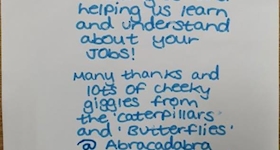 helping us learn
and understand
about your
JOBS!
Many thanks and
lots of cheeky
giggles from
the 'caterpillars'
and 'Butterflies'
@ Abracadabra